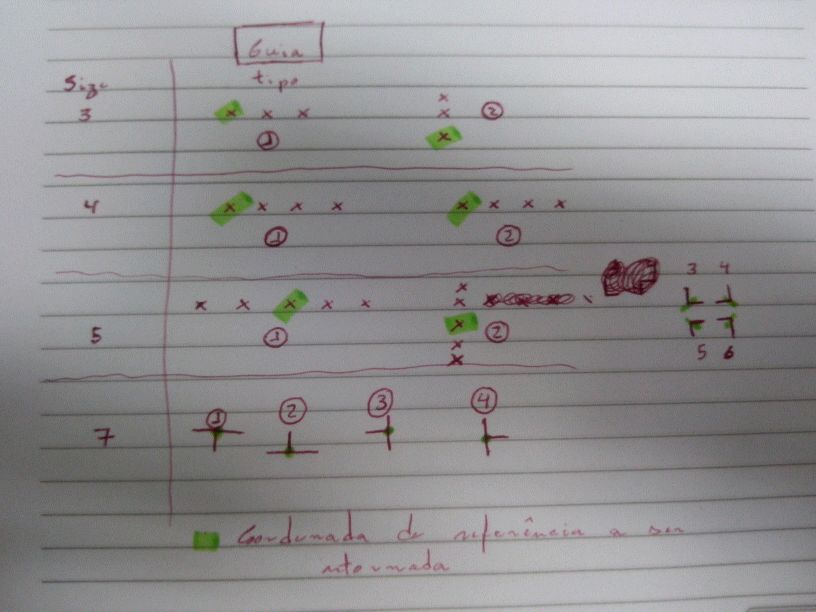 Guia
Size tipo
3 x x x x x x
① ②
4 x x x x x x x x
① ②
5 x x x x x x x x x x
① ②
3 4
5 6
7 ① ② ③ ④
Coordenada de referência a ser
retornada